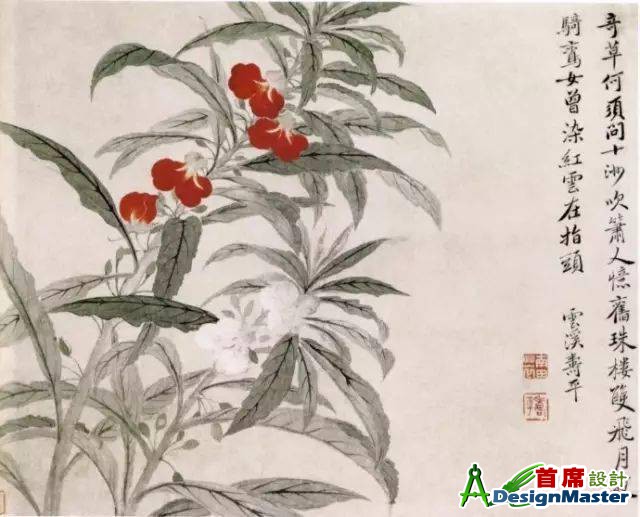 奇草何須問十洲吹簫人憶舊珠樓雙飛月
騎鸞女曾染紅雲在指頭
雲溪壽平
首席設計
DesignMaster